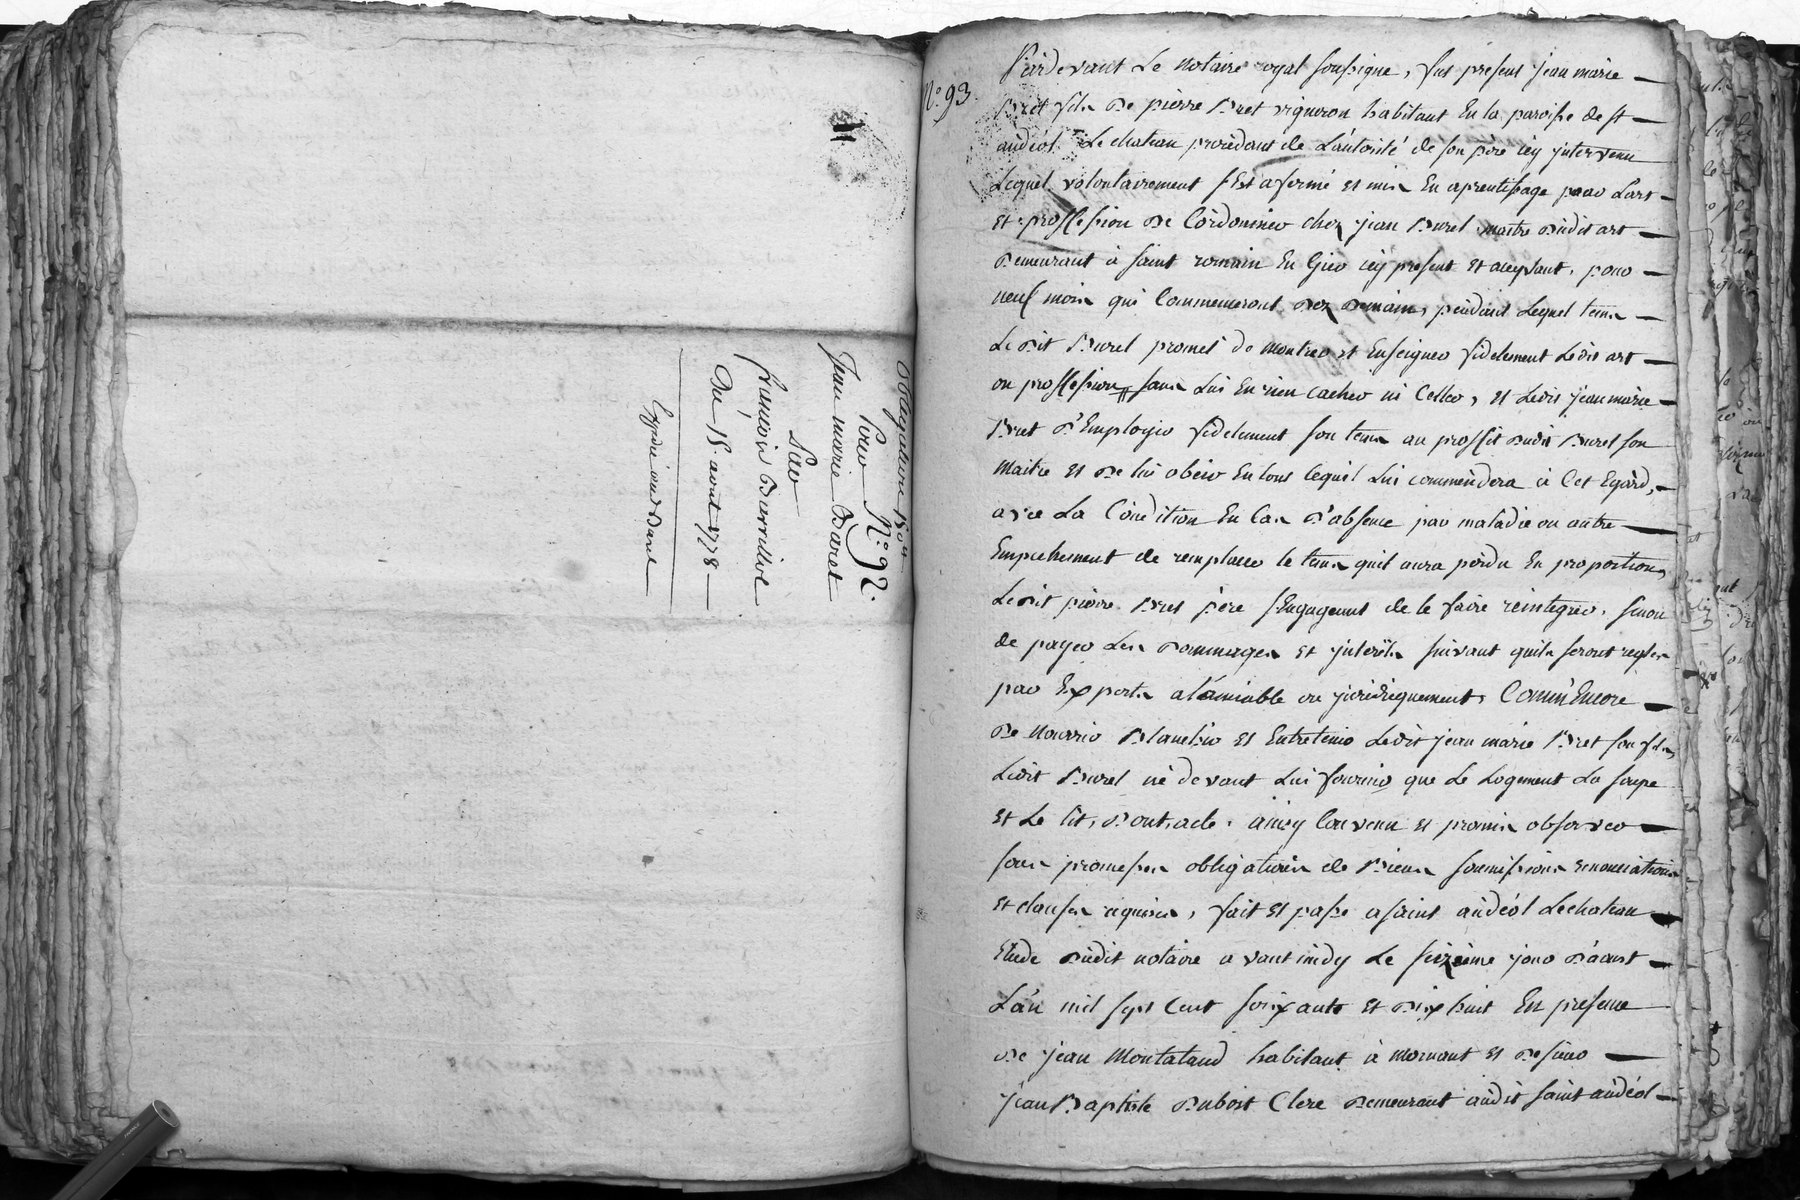 obligation 150#
Pour N.° 92.
Jean marie Baret
Sur
françois Dumillot
Du 15 aout 1778
Expédié aud Baret
N.° 93
Pardevant Le notaire royal soussigne, fut present jean marie
Bret fils De pierre Bret vigneron habitant En la paroisse de st
andéol Le chateau procedant de L'autorité de son pere icy jntervenu
Lequel volontairement s'Est afermé et mis En aprentissage pour L'art
Et proffession De Cordonnier chez jean Burel maitre dudit art
Demeurant à saint romain En Gier icy present Et aceptant, pour
neuf mois qui Commenceront Dez Demain, pendant Lequel tems
Ledit Burel promet de montrer et Enseigner fidelement Ledit art
ou proffession sans Lui En rien cacher ni Celler, Et Ledit jean marie
Bret D'Employer fidelement son tems au proffit dudit Burel son
maitre Et De lui obeir En tous cequil Lui commendera à Cet Egard,
avec La Condition En Cas D'absence par maladie ou autre
Empechement de remplacer le tems quil aura perdu En proportion,
Ledit pierre Bret pere s'Engageant de le faire reintegrer, sinon
de payer Les Dommages Et jnterêts suivant quils seront regles
par Experts a l'amiable ou juridiquement, Comm'Encore
De nourrir Blanchir Et Entretenir Ledit jean marie Bret son fils,
Ledit Burel ne devant Lui fournir que Le Logement La soupe
Et Le lit, Dont acte, ainsy Convenu Et promis observer
sous promesses obligations de Biens soumissions renonciations
Et clauses requises, fait Et passé a saint andéol Lechateau
Etude dudit notaire avant midy Le seizieme jour D'aoust
L'an mil sept Cent soixante Et Dix huit En presence
De jean Montaland habitant à mornant Et De sieur
jean Baptiste Dubost Clerc Demeurant audit saint andéol